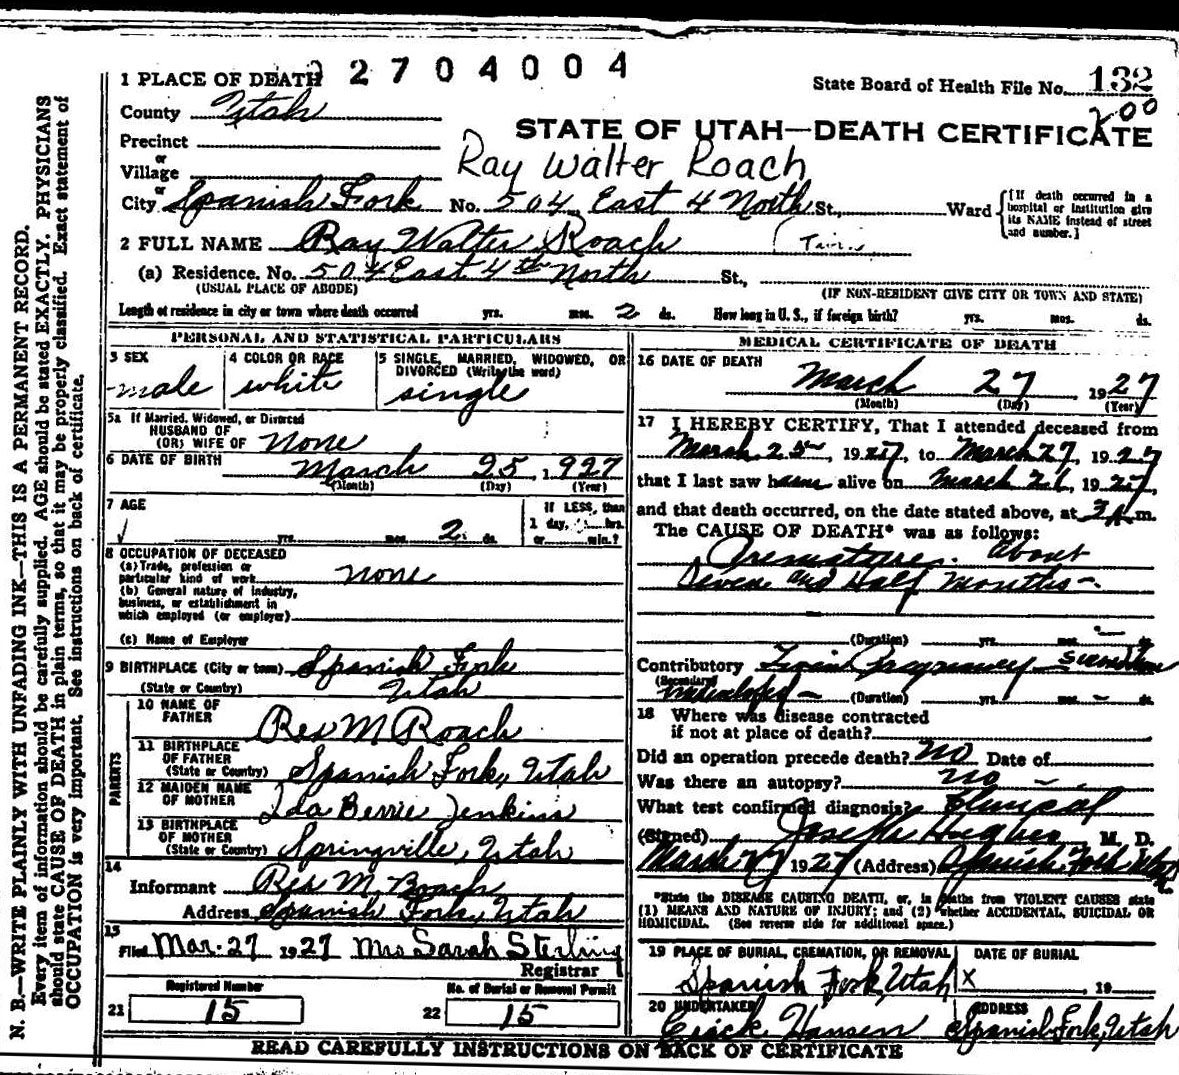 N. B.—WRITE PLAINLY WITH UNFADING INK—THIS IS A PERMANENT RECORD.
Every item of information should be carefully supplied. AGE should be stated EXACTLY. PHYSICIANS
should state CAUSE OF DEATH in plain terms, so that it may be properly classified. Exact statement of
OCCUPATION is very important. See instructions on back of certificate.
2704004
1 PLACE OF DEATH
State Board of Health File No. 132
200
County Utah
STATE OF UTAH—DEATH CERTIFICATE
Precinct
or
Village
Ray Walter Roach
or
City Spanish Fork No. 504 East 4 North St., Ward
[If death occurred in a hospital or institution give its NAME instead of street and number.]
2 FULL NAME Ray Walter Roach (Twin)
(a) Residence. No. 504 East 4th North St.,
(USUAL PLACE OF ABODE)
(IF NON-RESIDENT GIVE CITY OR TOWN AND STATE)
Length of residence in city or town where death occurred yrs. mos. 2 ds. How long in U. S., if foreign birth? yrs. mos. ds.
PERSONAL AND STATISTICAL PARTICULARS
3 SEX
male
4 COLOR OR RACE
white
5 SINGLE, MARRIED, WIDOWED, OR DIVORCED (Write the word)
single
5a If Married, Widowed, or Divorced
HUSBAND OF
(OR) WIFE OF none
6 DATE OF BIRTH March 25, 1927
(Month) (Day) (Year)
7 AGE
yrs. mos. 2 ds.
If LESS than
1 day, hrs.
or min.?
8 OCCUPATION OF DECEASED
(a) Trade, profession or
particular kind of work none
(b) General nature of industry,
business, or establishment in
which employed (or employer)
(c) Name of Employer
9 BIRTHPLACE (City or town) Spanish Fork
(State or Country) Utah
PARENTS
10 NAME OF
FATHER Res M Roach
11 BIRTHPLACE
OF FATHER
(State or Country) Spanish Fork, Utah
12 MAIDEN NAME
OF MOTHER Ida Berrie Jenkins
13 BIRTHPLACE
OF MOTHER
(State or Country) Springville, Utah
14
Informant Res M. Roach
Address Spanish Fork, Utah
15
Filed Mar. 27 1927 Mrs Sarah Sterling
Registrar
Registered Number
21 15
No. of Burial or Removal Permit
22 15
MEDICAL CERTIFICATE OF DEATH
16 DATE OF DEATH
March 27 1927
(Month) (Day) (Year)
17 I HEREBY CERTIFY, That I attended deceased from
March 25, 1927, to March 27, 1927
that I last saw him alive on March 26, 1927,
and that death occurred, on the date stated above, at 3 A m.
The CAUSE OF DEATH* was as follows:
Premature. About
Seven and Half months—
(Duration) yrs. mos. ds.
Contributory Twin Pregnancy
(Secondary)
(Duration) yrs. mos.
18 Where was disease contracted
if not at place of death?
Did an operation precede death? No Date of
Was there an autopsy? no
What test confirmed diagnosis?
(Signed) Joseph Hughes M. D.
March 27 1927 (Address) Spanish Fork Utah
*State the DISEASE CAUSING DEATH, or, in deaths from VIOLENT CAUSES state
(1) MEANS AND NATURE OF INJURY; and (2) whether ACCIDENTAL, SUICIDAL OR
HOMICIDAL. (See reverse side for additional space.)
19 PLACE OF BURIAL, CREMATION, OR REMOVAL
Spanish Fork, Utah
DATE OF BURIAL
X , 19
20 UNDERTAKER
Erick Hansen
ADDRESS
Spanish Fork, Utah
READ CAREFULLY INSTRUCTIONS ON BACK OF CERTIFICATE